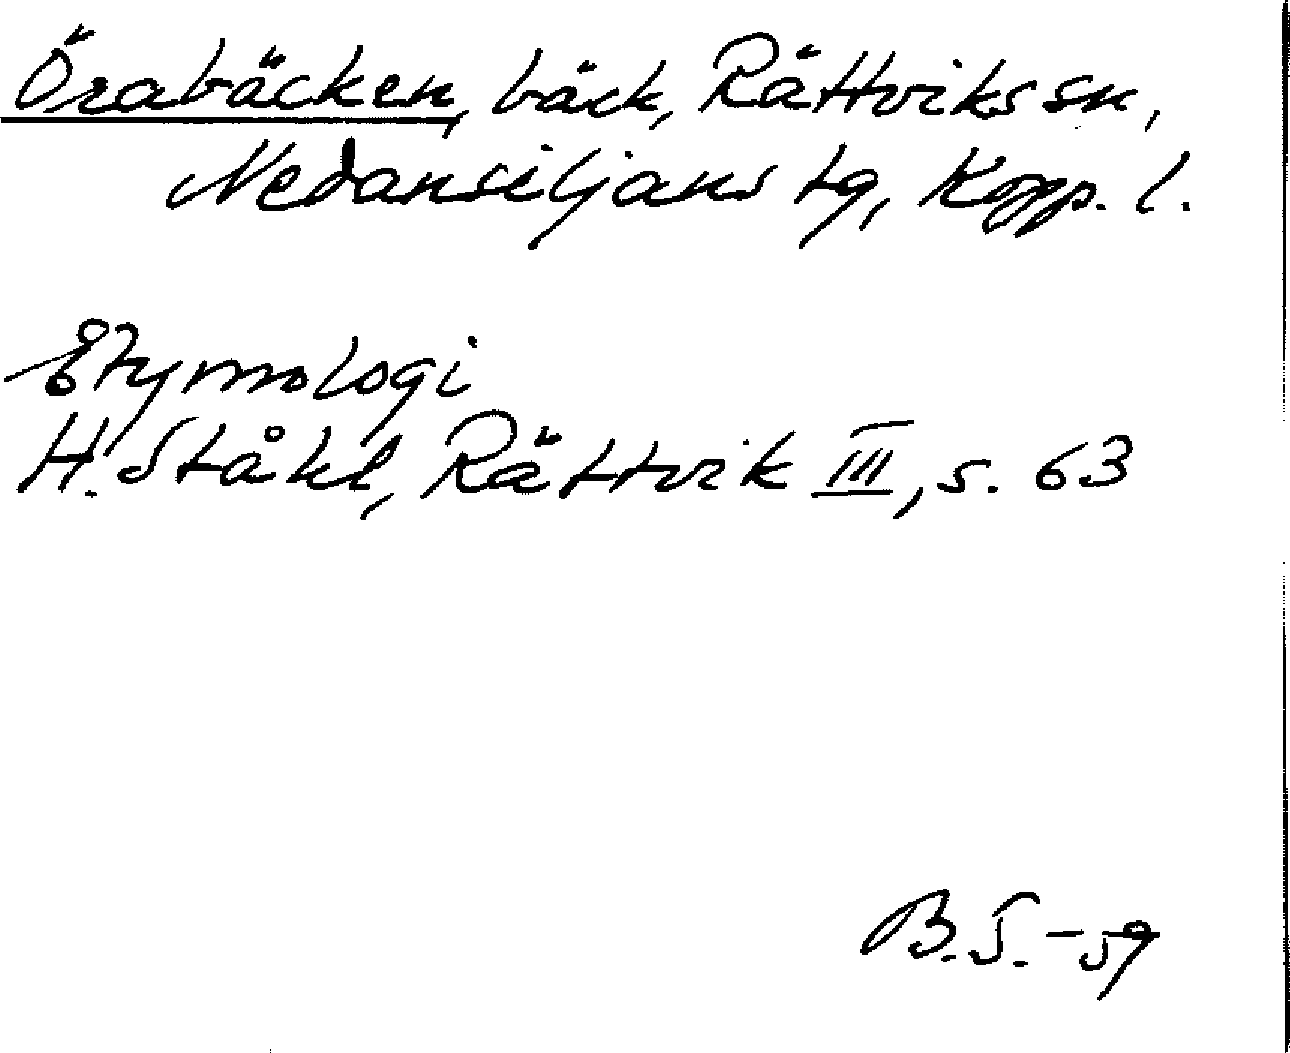 Örabäcken, bäck, Rättviks sn,
Nedansiljans tg, Kopp. l.
Etymologi
H. Ståhl, Rättvik III, s. 63
B.S. -59